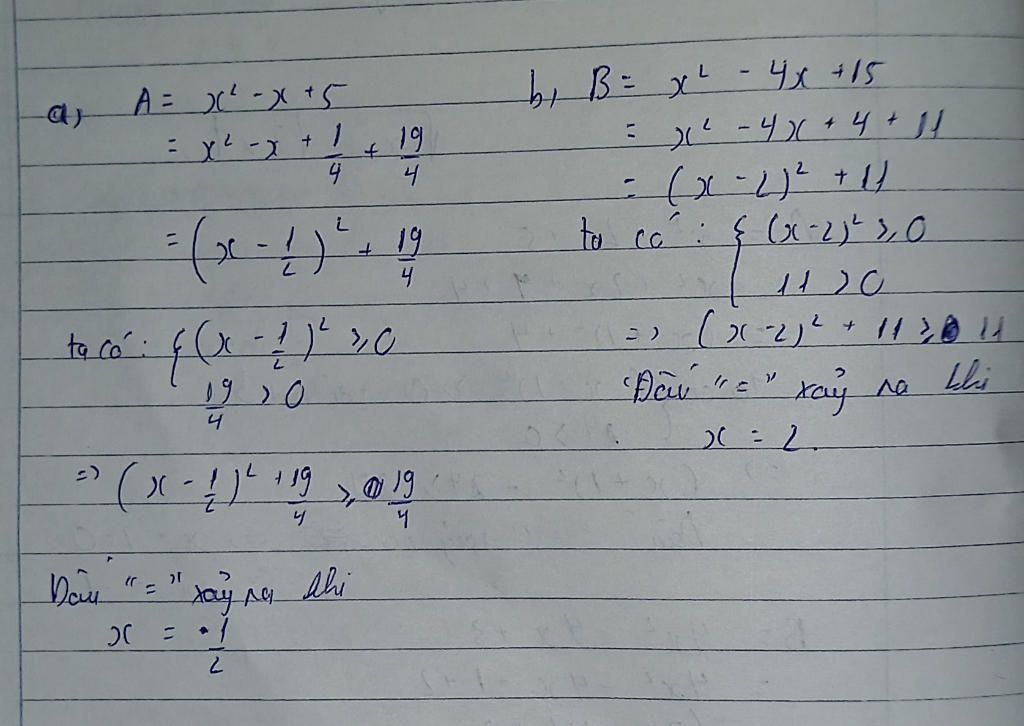 a, A = x² - x + 5
= x² - x + 1/4 + 19/4
= (x - 1/2)² + 19/4
ta có: { (x - 1/2)² ≥ 0
19/4 > 0
=> (x - 1/2)² + 19/4 ≥ 19/4
Dấu "=" xảy ra khi
x = 1/2
b, B = x² - 4x + 15
= x² - 4x + 4 + 11
= (x - 2)² + 11
ta có: { (x-2)² ≥ 0
11 > 0
=> (x - 2)² + 11 ≥ 11
Dấu "=" xảy ra khi
x = 2.